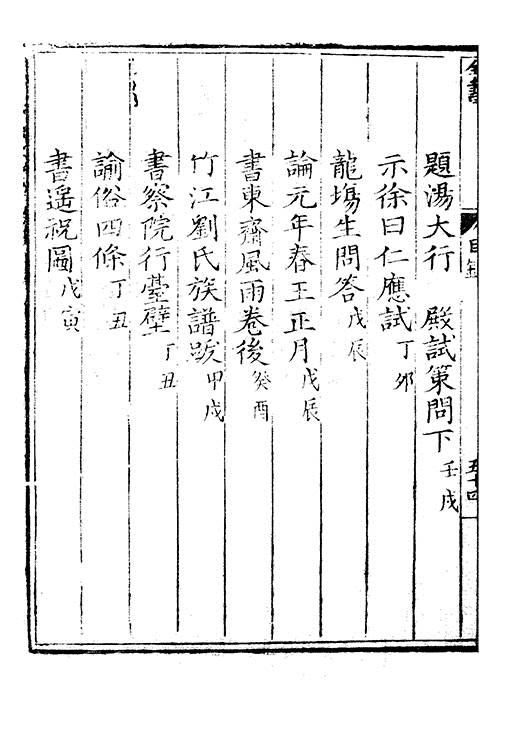 題湯大行　殿試策問下壬戌
示徐曰仁應試丁夘
龍塲生問答戊辰
論元年春王正月戊辰
書東齋風雨卷後癸酉
竹江劉氏族譜跋甲戌
書察院行臺壁丁丑
諭俗四條丁丑
書遥祝圖戊寅